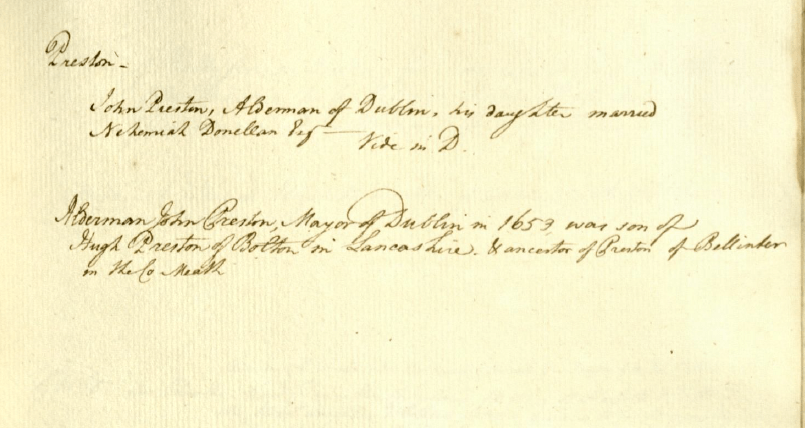 Preston -
John Preston, Alderman of Dublin, his daughter married
Nehemiah Donellan Esq —
Vide in D.
Alderman John Preston, Mayor of Dublin in 1653, was son of
Hugh Preston of Bolton in Lancashire. & ancestor of Preston of Bellinter
in the Co Meath